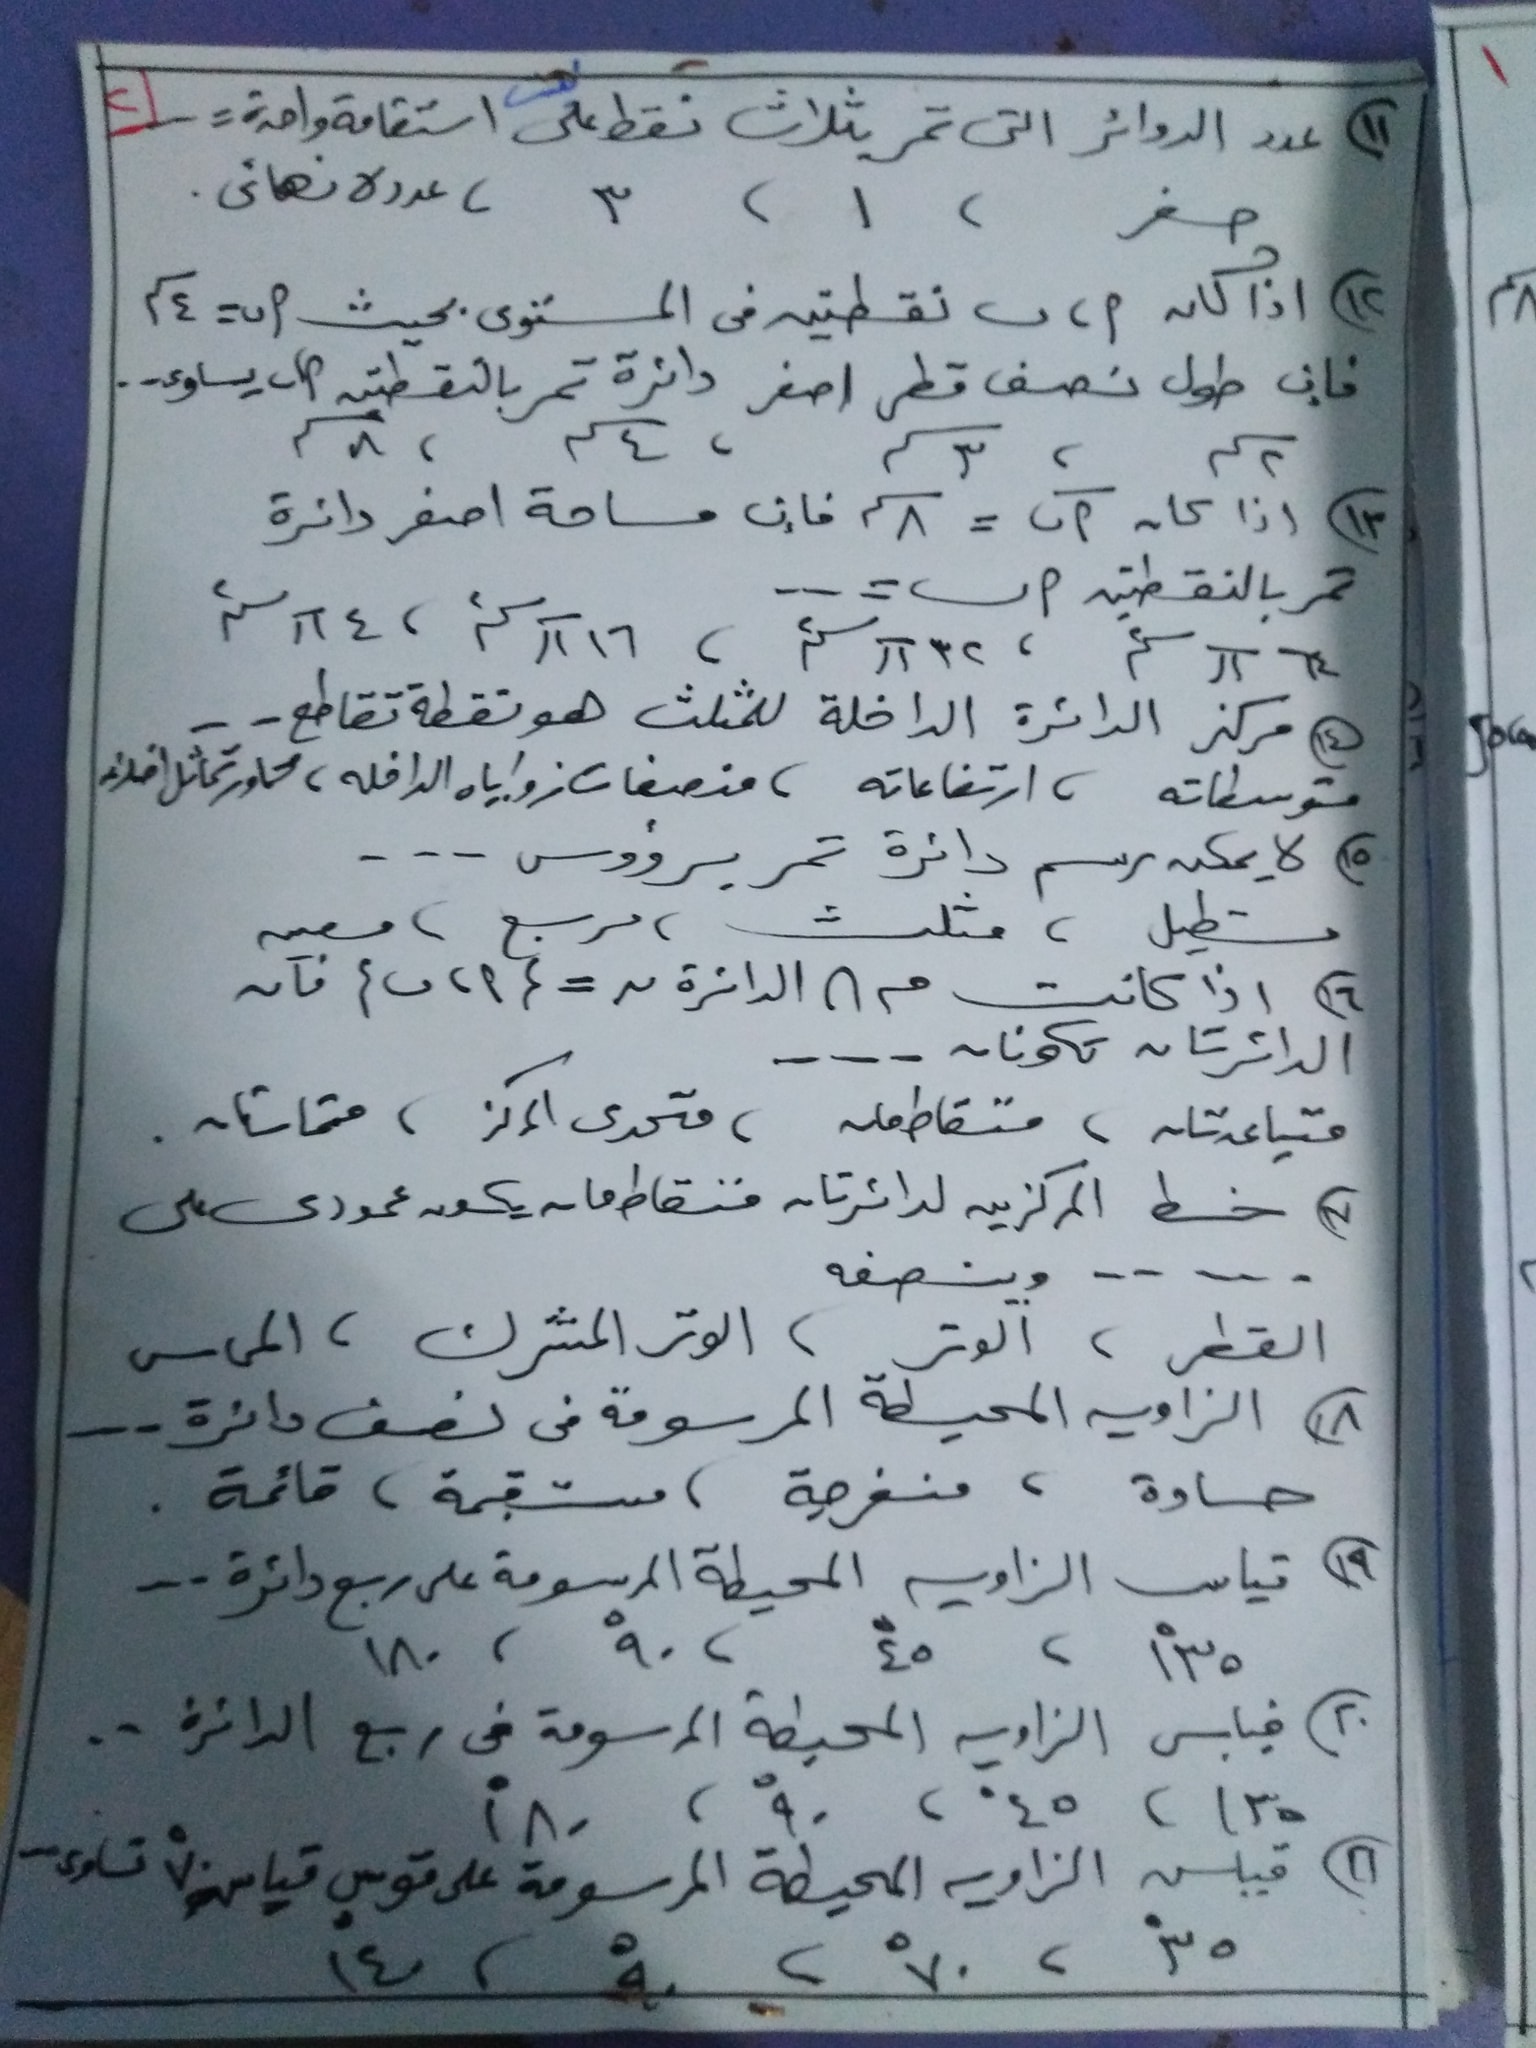 (١١) عدد الدوائر التى تمر بثلاث نقط ليست على استقامة واحدة = ---
صفر ، ١ ، ٣ ، عدد لا نهائى .
(١٢) اذا كان م ، ب نقطتين فى المستوى بحيث م ب = ٤ سم
فإن طول نصف قطر اصغر دائرة تمر بالنقطتين م ، ب يساوى ---
٢ سم ، ٣ سم ، ٤ سم ، ٨ سم
(١٣) اذا كان م ب = ٨ سم فإن مساحة اصغر دائرة
تمر بالنقطتين م ب = ---
٦٤ π سم٢ ، ٣٢ π سم٢ ، ١٦ π سم٢ ، ٤ π سم٢
(١٤) مركز الدائرة الداخلة للمثلث هو نقطة تقاطع ---
متوسطاته ، ارتفاعاته ، منصفات زواياه الداخله ، محاور تماثل اضلاعه
(١٥) لا يمكن رسم دائرة تمر برؤوس ---
مستطيل ، مثلث ، مربع ، معين
(١٦) اذا كانت م ∩ الدائرة ن = {م ، ب} فآن
الدائرتان تكونان ----
متباعدتان ، متقاطعان ، متحدى المركز ، متماستان .
(١٧) خط المركزين لدائرتان متقاطعان يكون عمودى على
----- وينصفه
القطر ، الوتر ، الوتر المشترك ، المماس
(١٨) الزاويه المحيطة المرسومة فى نصف دائرة ---
حادة ، منفرجة ، مستقيمة ، قائمة .
(١٩) قياس الزاويه المحيطة المرسومة على ربع دائرة ---
١٣٥° ، ٤٥° ، ٩٠° ، ١٨٠
(٢٠) قياس الزاويه المحيطة المرسومة فى ربع الدائرة --
١٣٥ ، ٤٥° ، ٩٠° ، ١٨٠°
(٢١) قياس الزاويه المحيطة المرسومة على قوس قياسه ٧٠° تساوى --
٣٥° ، ٧٠° ، ٩٠° ، ١٤٠°